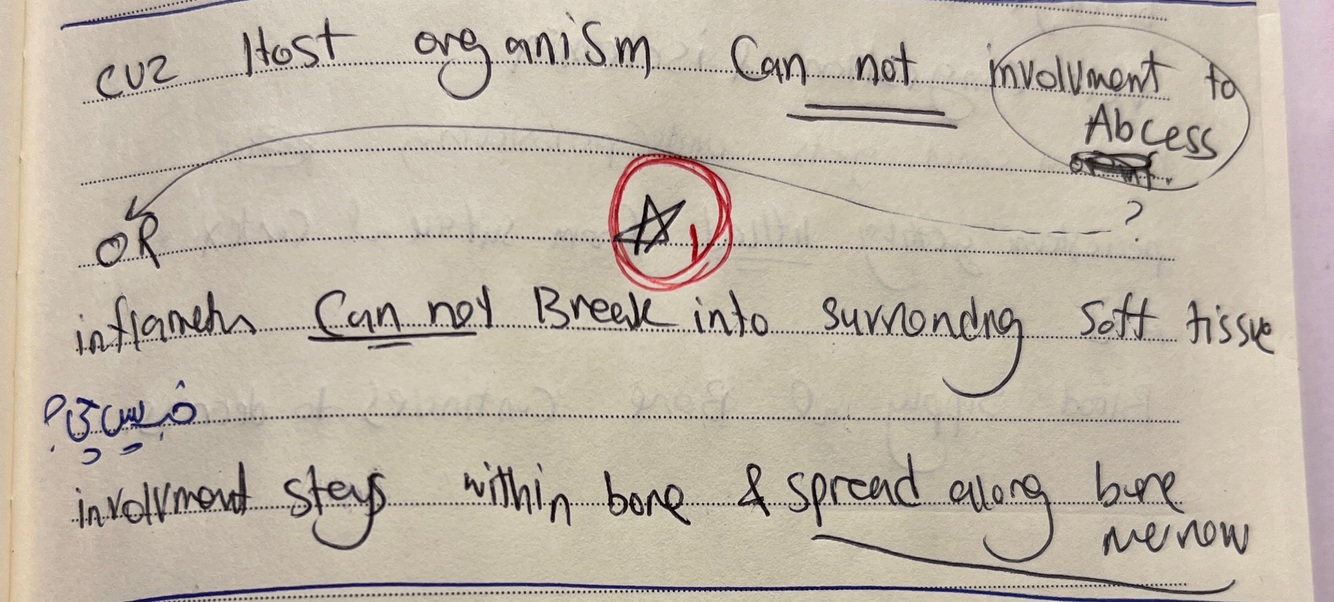 cuz Host organism Can not involvment to
Abcess
?
OR
inflametn Can not Break into surrondng Soft tissue
involvment steys within bone & spread along bone
merrow